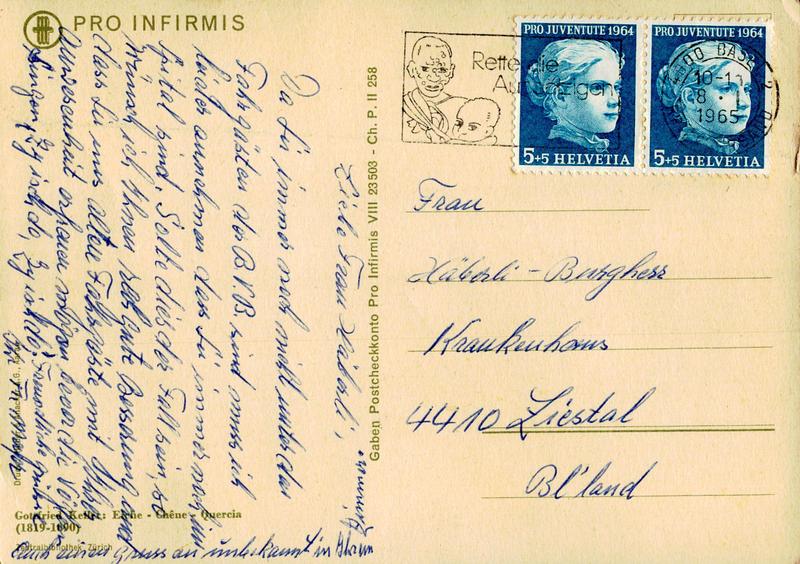 PRO INFIRMIS
Liebe Frau Häberli,
Da Sie immer noch nicht unter den
Fahrgästen der B.V.B. sind muss ich
leider annehmen dass Sie immer noch im
Spital sind. Sollte dies der Fall sein, so
wünsch ich Ihnen recht gute Besserung und
dass Sie uns alten Fahrgäste mit Ihrer
Anwesenheit erfreuen mögen bevor die Vöglein
singen, Er ist da, Er ist da, Freundliche Grüsse
auch einen Gruss an unbekannt in Ihrem
Gottfried Keller: Eiche - Chêne - Quercia
(1819-1890)
Zentralbibliothek Zürich
Gaben Postcheckkonto Pro Infirmis VIII 23503 - Ch. P. II 258
Rette die
Aussätzigen
PRO JUVENTUTE 1964
5+5 HELVETIA
PRO JUVENTUTE 1964
5+5 HELVETIA
BASEL 2
10-
8. I.
1965
Frau
Häberli-Burgherr
Krankenhaus
4410 Liestal
Bl'land